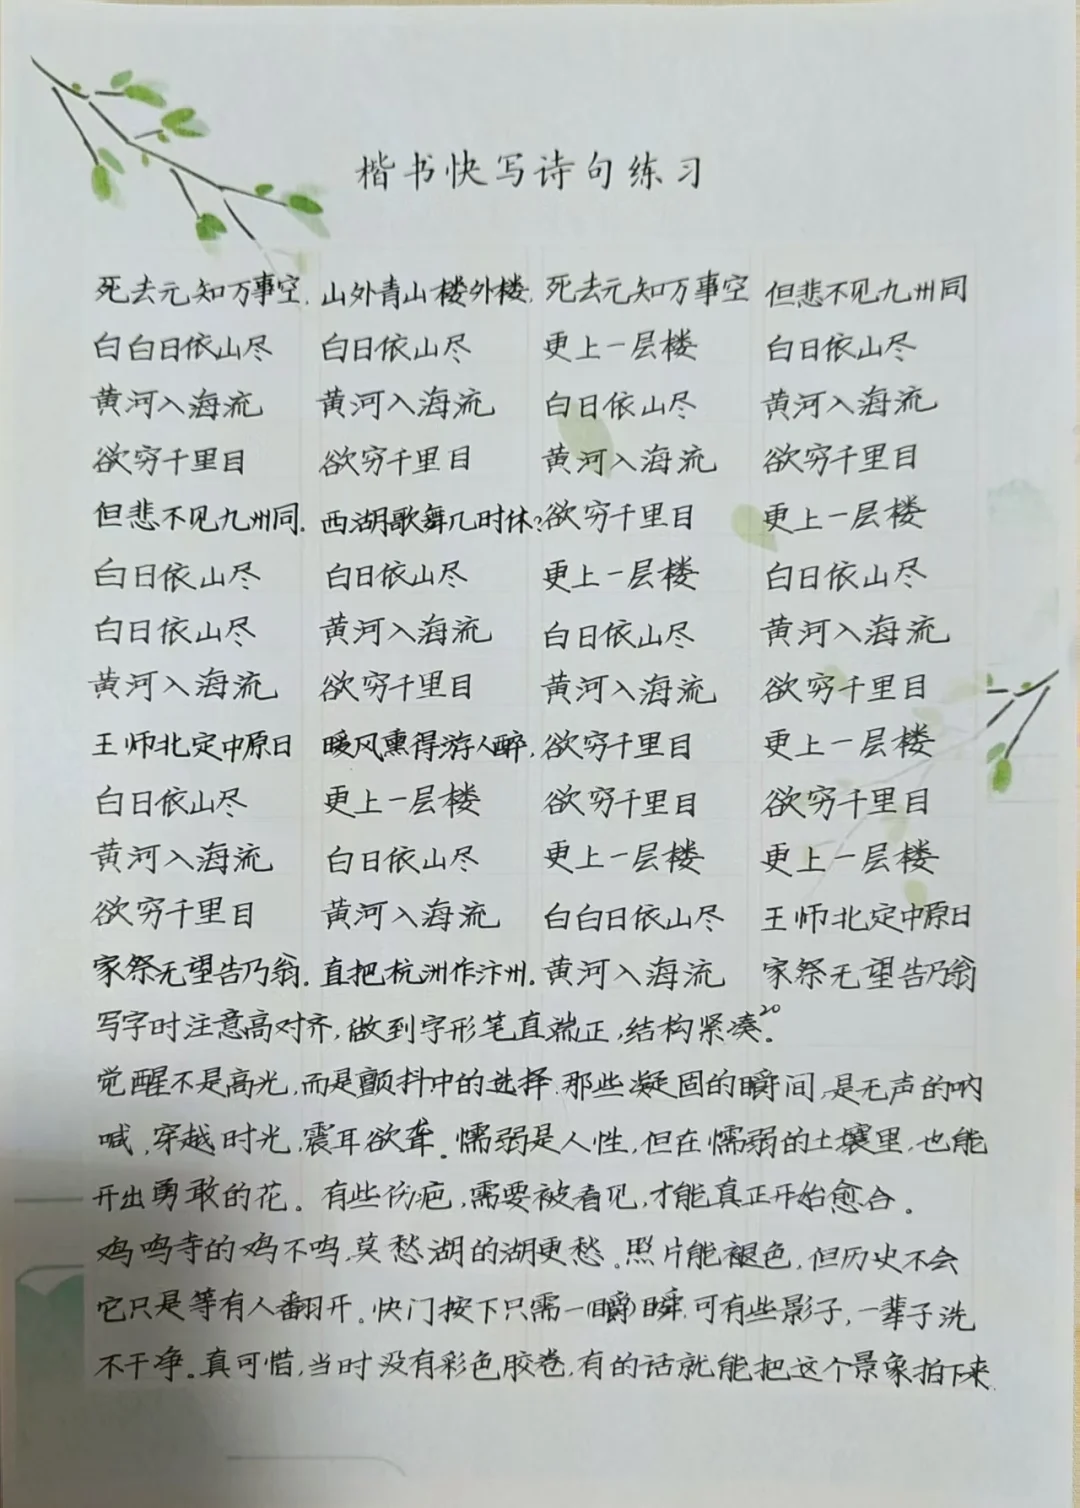 楷书快写诗句练习
死去元知万事空. 山外青山楼外楼. 死去元知万事空 但悲不见九州同
白白日依山尽 白日依山尽 更上一层楼 白日依山尽
黄河入海流 黄河入海流 白日依山尽 黄河入海流
欲穷千里目 欲穷千里目 黄河入海流 欲穷千里目
但悲不见九州同. 西湖歌舞几时休? 欲穷千里目 更上一层楼
白日依山尽 白日依山尽 更上一层楼 白日依山尽
白日依山尽 黄河入海流 白日依山尽 黄河入海流
黄河入海流 欲穷千里目 黄河入海流 欲穷千里目
王师北定中原日 暖风熏得游人醉. 欲穷千里目 更上一层楼
白日依山尽 更上一层楼 欲穷千里目 欲穷千里目
黄河入海流 白日依山尽 更上一层楼 更上一层楼
欲穷千里目 黄河入海流 白白日依山尽 王师北定中原日
家祭无望告乃翁. 直把杭州作汴州. 黄河入海流 家祭无望告乃翁
写字时注意高对齐,做到字形笔直端正,结构紧凑。20
觉醒不是高光,而是颤抖中的选择.那些凝固的瞬间,是无声的呐
喊,穿越时光,震耳欲聋。懦弱是人性,但在懦弱的土壤里,也能
开出勇敢的花。有些伤疤,需要被看见,才能真正开始愈合。
鸡鸣寺的鸡不鸣,莫愁湖的湖更愁。照片能褪色,但历史不会
它只是等有人翻开。快门按下只需一(瞬)瞬.可有些影子,一辈子洗
不干净。真可惜,当时没有彩色胶卷,有的话就能把这个景象拍下来.